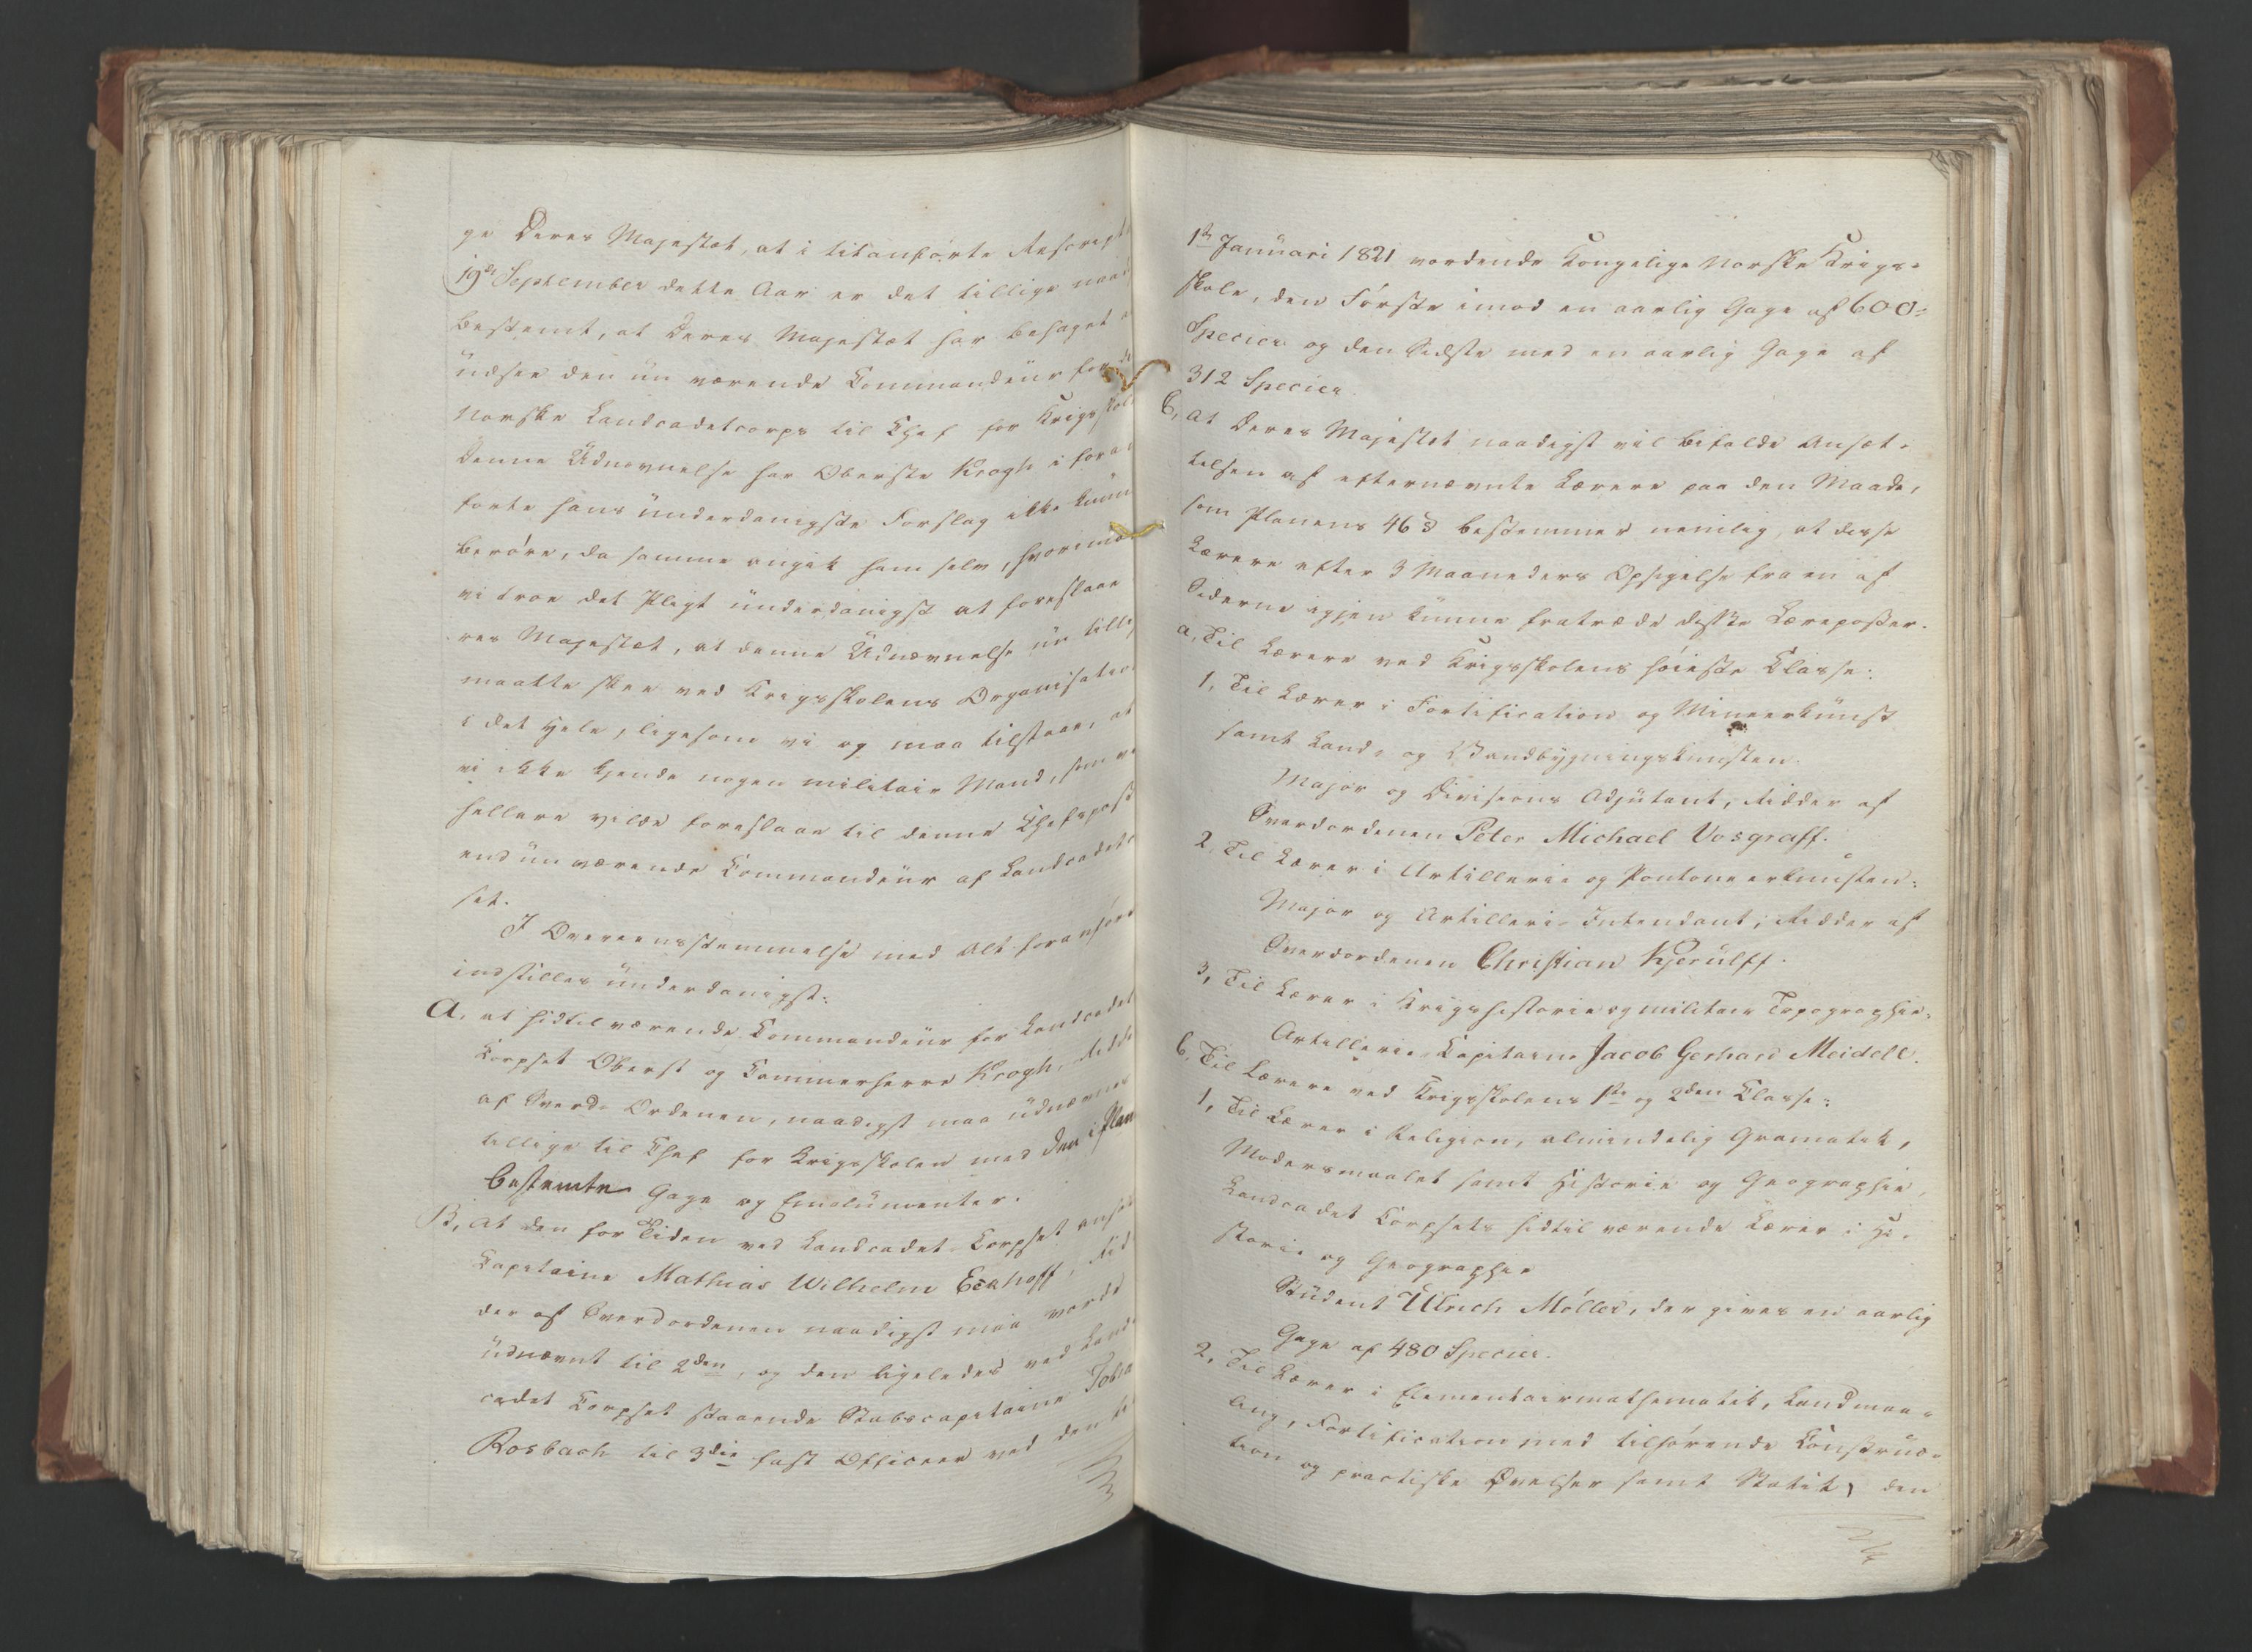 ge Deres Majestæt, at i titanførte Rescript
19de September dette Aar er det tillige
bestemt, at Deres Majestæt har behaget
udsee den nu værende Commandeur for
Norske Landcadetcorps til Chef for Krigsskol
Denne Udnævnelse har Oberste Krogh i foran
førte hans underdanigste Forslag ikke kunn
berøre, da samme angik ham selv, hvorimo
vi troe det Pligt underdanigst at foreslaae
res Majestæt, at denne Udnævnelse nu tillig
maatte skee ved Krigsskolens Organisation
i det Hele, ligesom vi og maa tilstaae, at
vi ikke kjende nogen militair Mand, som vi
hellere vilde foreslaae til denne Chefspost
end nu værende Commandeur af Landcadetc
set.
I Overeensstemmelse med Alt foranføre
indstilles underdanigst:
A, at hidtil værende Commandeur for Landcadet
Corpset Oberst og Kammerherre Krogh, Ridde
af Sværd-Ordenen, naadigst maa udnævnes
tillige til Chef for Krigsskolen med den i Plan
bestemte Gage og Emolumenter.
B, at den for Tiden ved Landcadet-Corpset ansat
Capitaine Mathias Wilhelm Eckhoff, Rid
der af Sværdordenen naadigst maa vorde
udnævnt til 2den, og den ligeledes ved Land
cadet Corpset staaende Stabscapitaine Tobia
Rosbach til 3die fast Officeer ved den fra
1ste Januari 1821 vordende Kongelige Norske Krigs-
skole, den Første imod en aarlig Gage af 600
Species og den Sidste med en aarlig Gage af
312 Species.
C, at Deres Majestæt naadigst vil bifalde Ansæt-
telsen af efternævnte Lærere paa den Maade,
som Planens 46 § bestemmer nemlig, at disse
Lærere efter 3 Maaneders Opsigelse fra en af
Siderne igjen kunne fratræde disse Læreposter.
a, Til Lærere ved Krigsskolens høieste Classe:
1, Til Lærer i Fortification og Mineerkunst
samt Land- og Vandbygningskunsten:
Major og Divisions Adjutant, Ridder af
Sværdordenen Peter Michael Vosgraff.
2, Til Lærer i Artillerie og Pontoneerkunsten:
Major og Artilleri-Intendant, Ridder af
Sværdordenen Christian Kjerulff.
3, Til Lærer i Krigshistorie og militair Topographie:
Artillerie-Capitaine Jacob Gerhard Meidell.
b, Til Lærere ved Krigsskolens 1ste og 2den Classe:
1, Til Lærer i Religion, almindelig Gramatik,
Modersmaalet samt Historie og Geographie,
Landcadet Corpsets hidtil værende Lærer i Hi-
storie og Geographie
Student Ulrich Møller, der gives en aarlig
Gage af 480 Species.
2, Til Lærer i Elementairmathematik, Landmaa-
ling, Fortification med tilhørende Construc-
tion og practiske Øvelser samt Statik, den